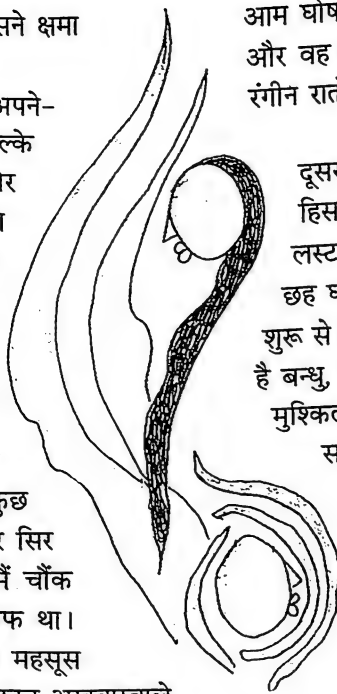 सने क्षमा
अपने-
ल्के
र
कुछ
र सिर
मैं चौंक
फ था।
महसूस
आम घोष
और वह
रंगीन रात
दूसर
हिस
लस्ट
छह घ
शुरू से
है बन्धु,
मुश्किल
स